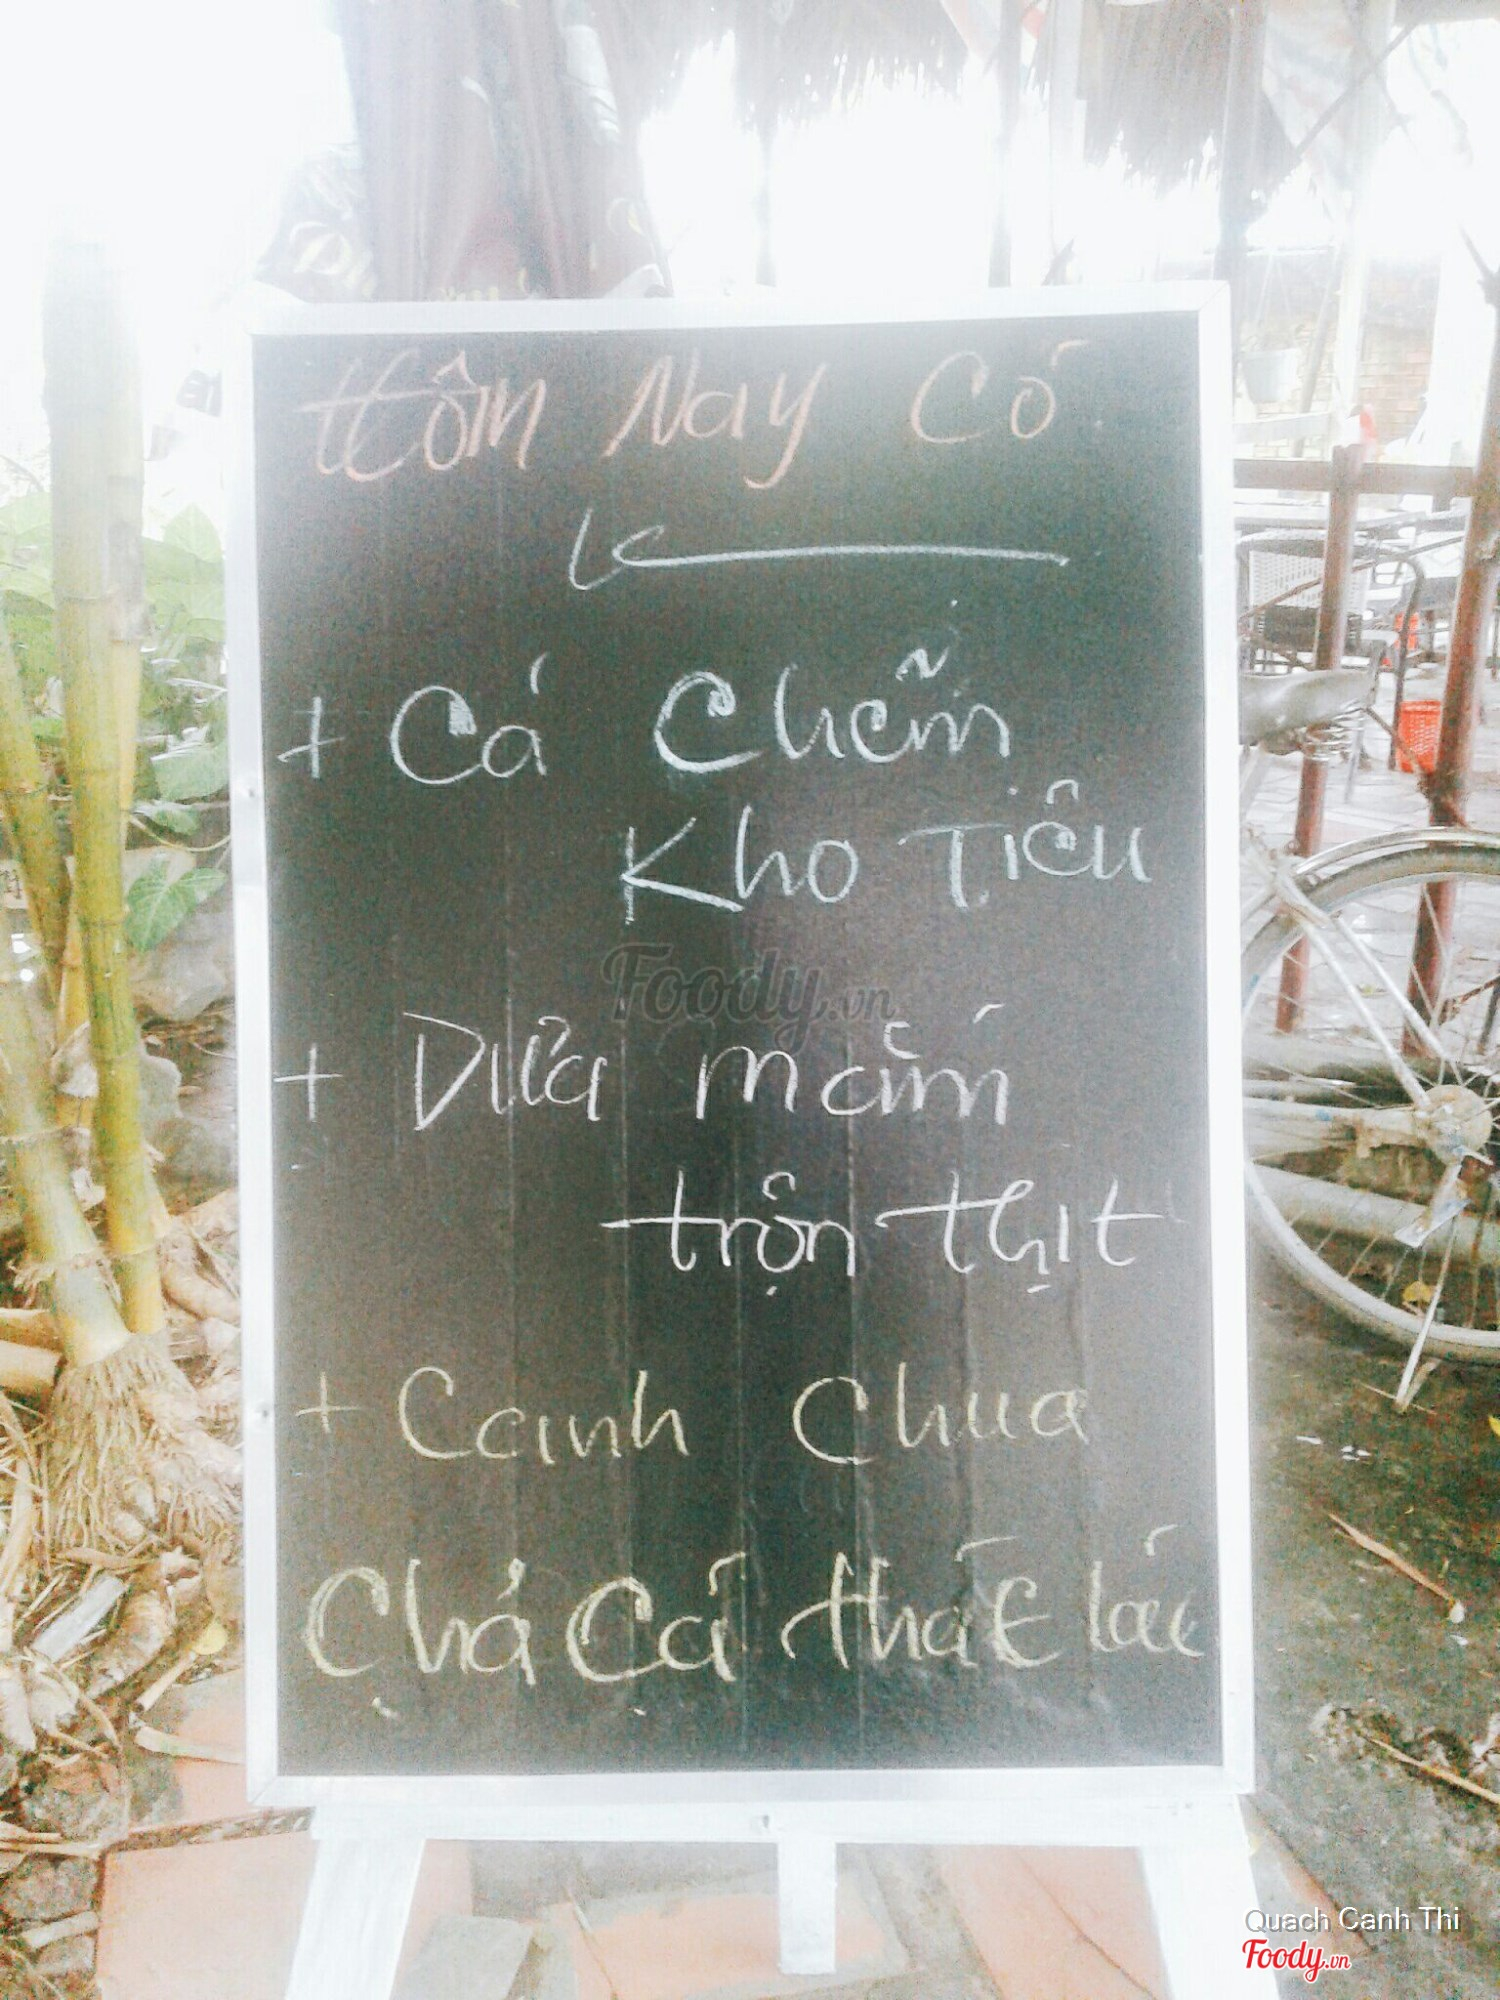 Hôm Nay Có
+ Cá Chẽm
Kho Tiêu
Foody.vn
+ Dưa mắm
trộn thịt
+ Canh Chua
Chả Cá thát lác
Quach Canh Thi
Foody.vn